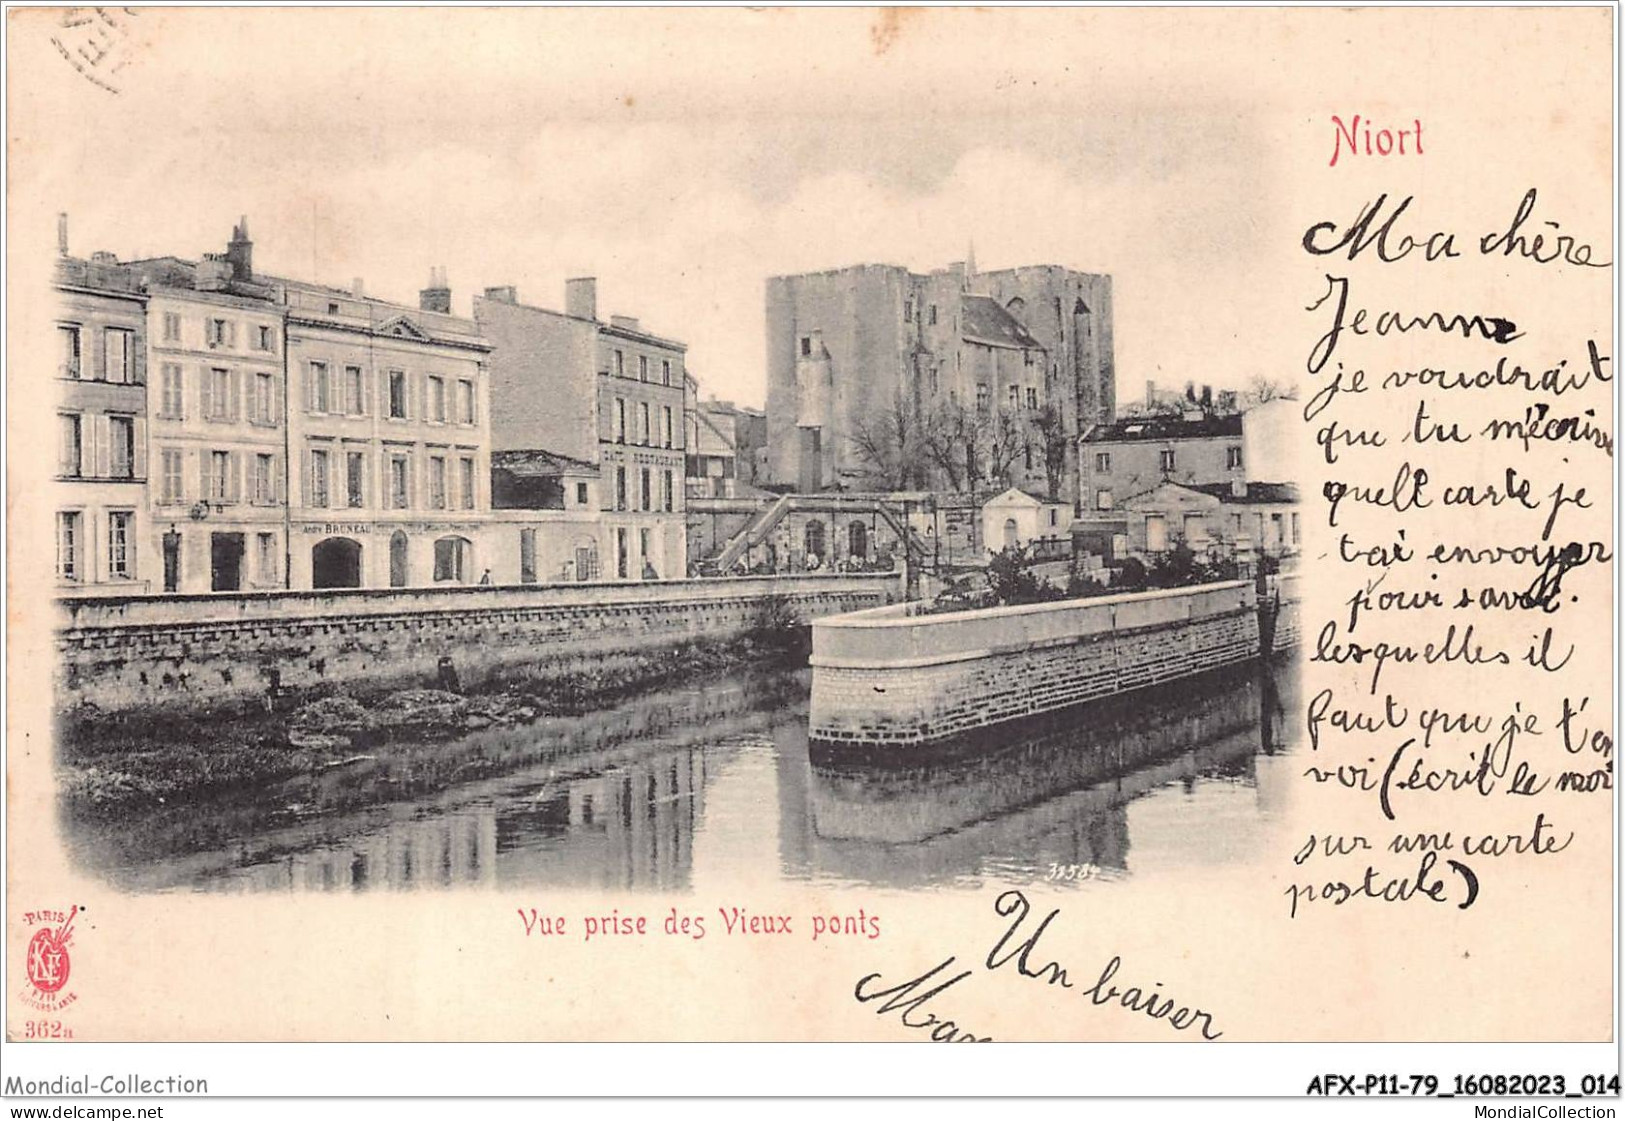 Niort
Ma chère
Jeanne
je voudrait
que tu m'écrive
quelle carte je
tai envoyer
pour savoir
lesquelles il
faut que je t'en
voi (écrit le moi
sur une carte
postale)
Un baiser
CAFE RESTAURANT
ANDRE BRUNEAU
32584
Vue prise des Vieux ponts
PARIS
KF
362a
Mondial-Collection
delcampe.net
AFX-P11-79_16082023_014
MondialCollection